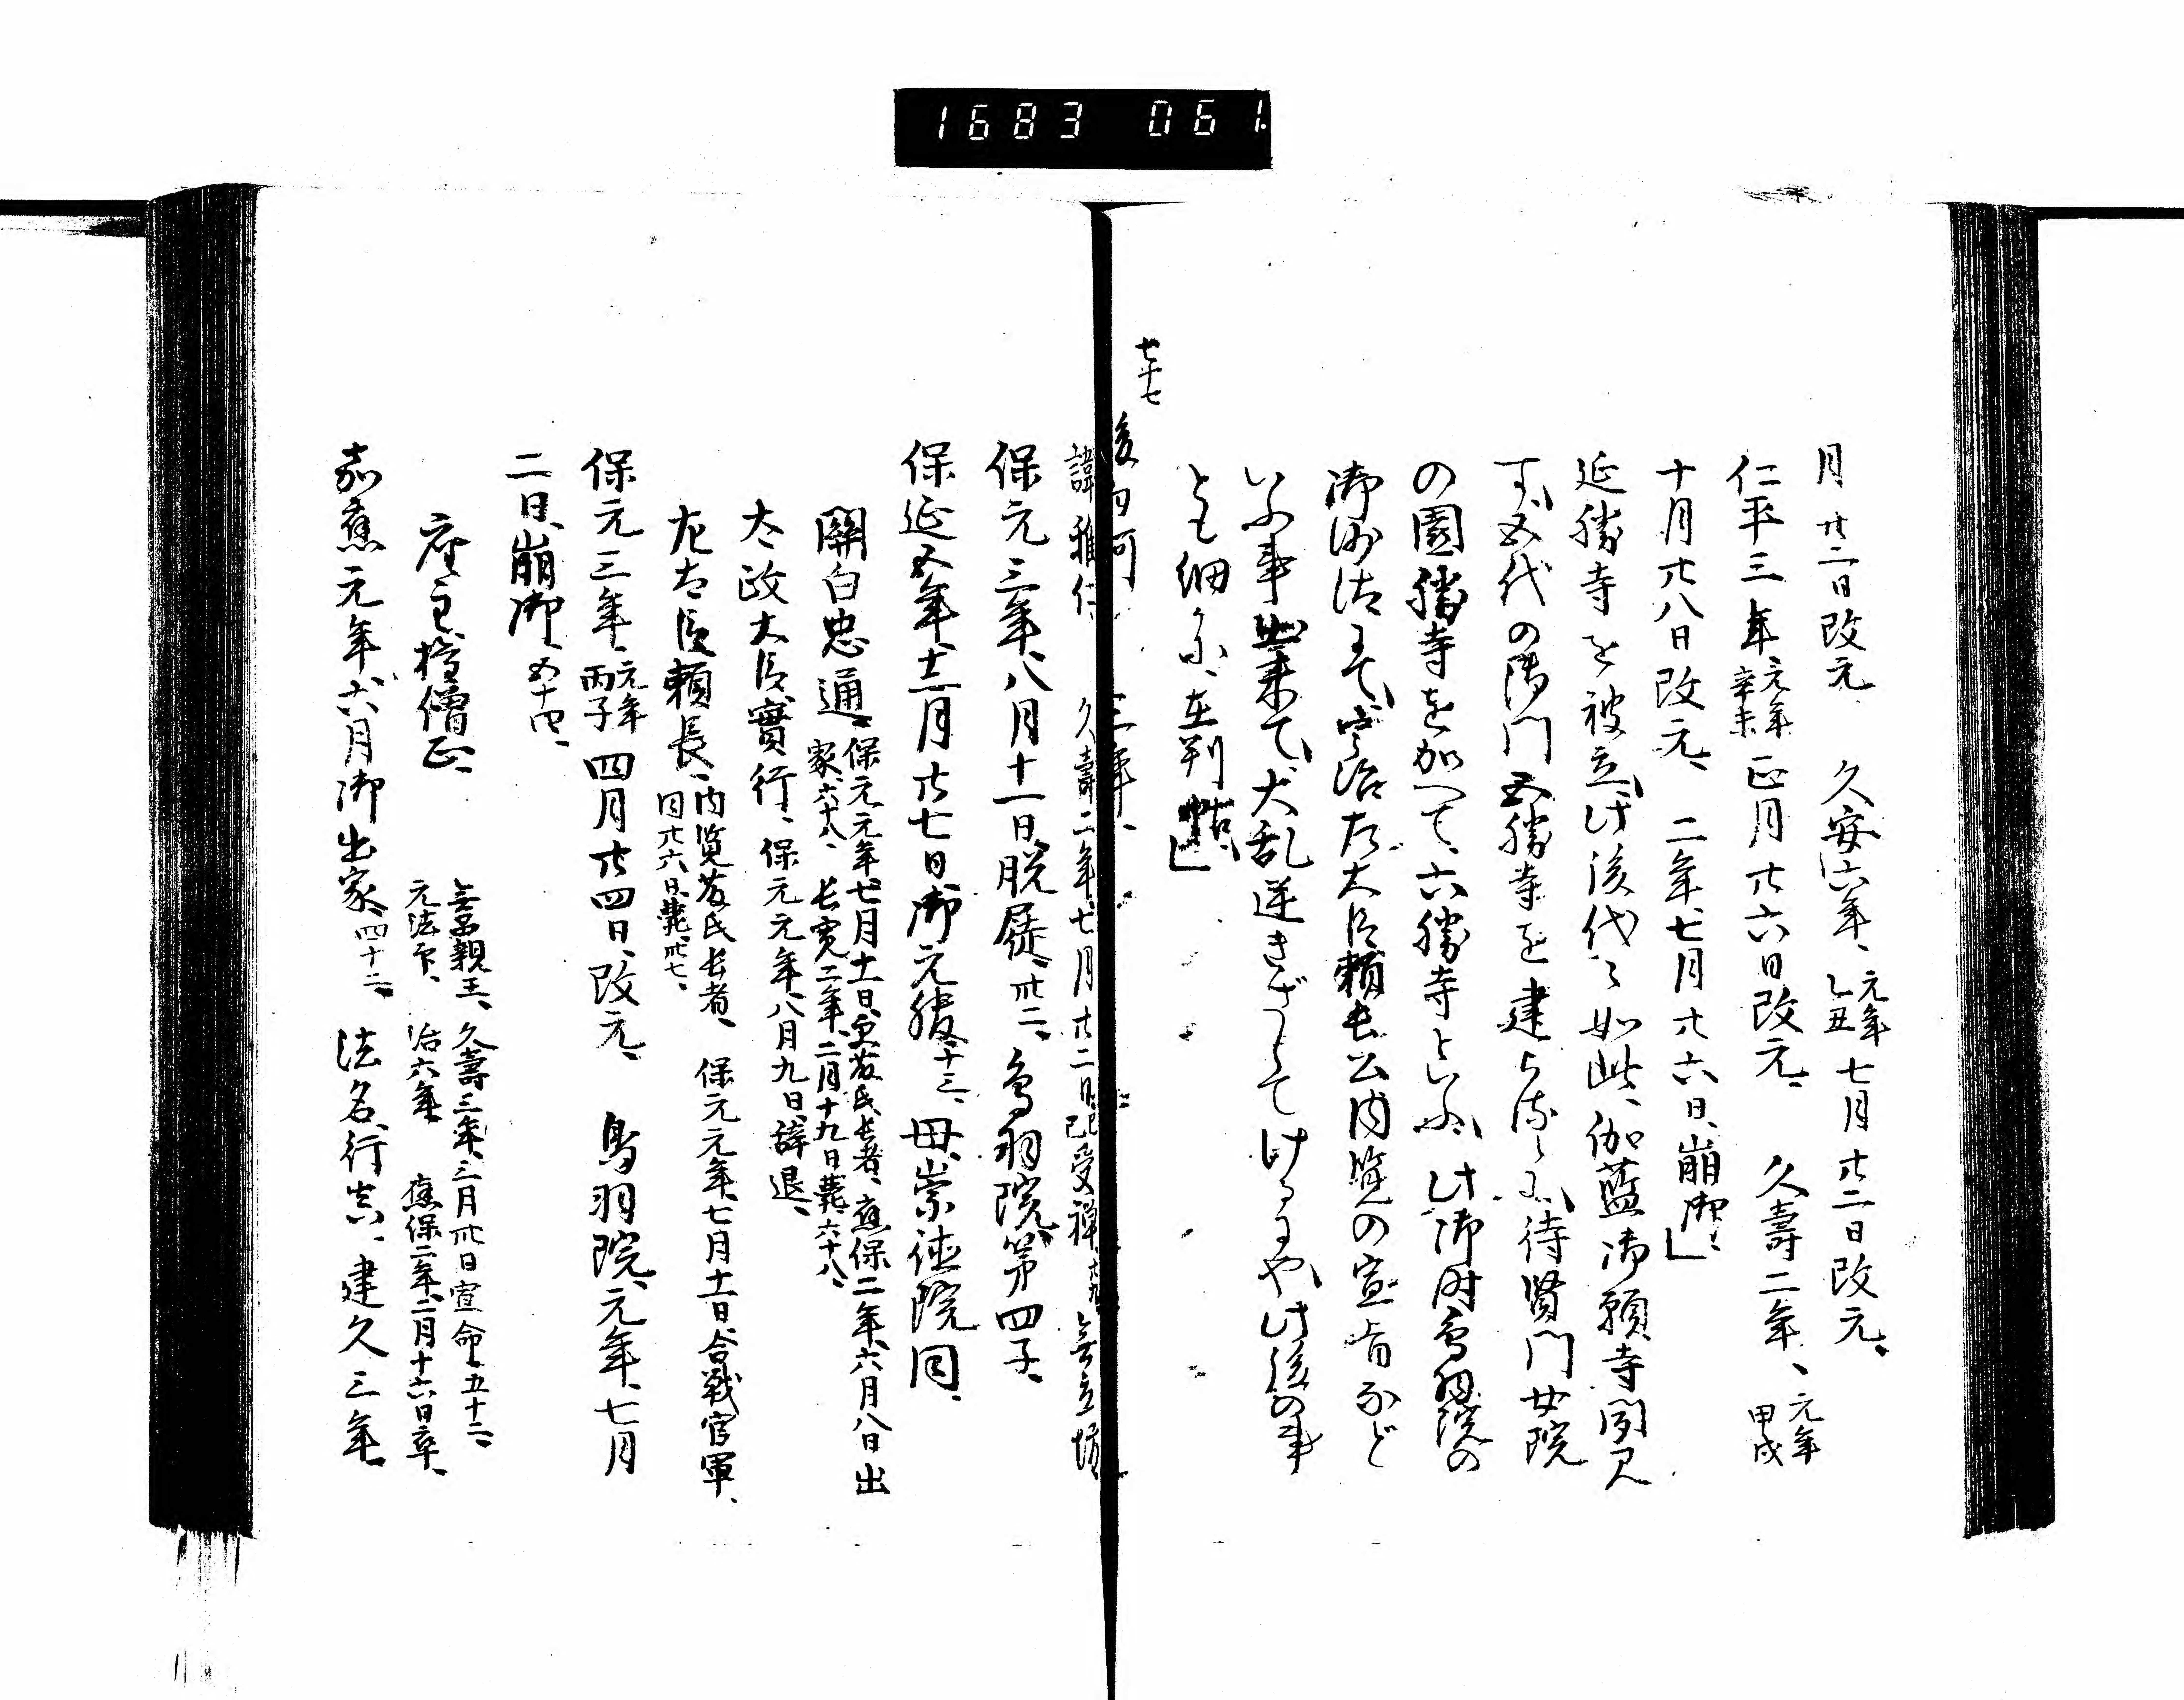 1683 061.
月廿二日改元、久安六年、元年乙丑七月廿二日改元、
仁平三年、元年辛未正月廿六日改元、久壽二年、元年甲戌
十月廿八日改元、二年、七月廿六日、崩御、」
延勝寺を被立、此後代々如此、伽藍御願寺聞見
五代の御門五勝寺を建られしに、待賢門女院
の圓勝寺を加へて、六勝寺といふ、此御時鳥羽院の
御沙汰にて、宇治左大臣頼長公内覧の宣旨など
いふ事出来て、大乱逆きざして けるにや、此後の事
とも細かに、在別帖、」
七十七
後白河 三年、
諱雅仁 久壽二年、七月廿二日、己巳受禅、廿九、無立坊、
保元三年、八月十一日脱屣、卅二、鳥羽院第四子、
保延五年、十二月廿七日御元服、十三、母崇徳院同、
關白忠通、保元元年、七月十一日更藤氏長者、應保二年、六月八日出
家、六十八、長寛二年、二月十九日薨、六十八、
太政大臣實行、保元元年、八月九日、辞退、
左大臣頼長、内覧藤氏長者、保元元年、七月十一日、合戦官軍、
同廿六日薨、卅七、
保元三年、元年丙子四月廿四日、改元、鳥羽院、元年、七月
二日、崩御、五十四、
座主權僧正、
無品親王、久壽三年、三月卅日宣命、五十二、
元法印、治六年 應保二年、二月十六日卒、
嘉應元年、六月御出家、四十二、法名行真、建久三年、